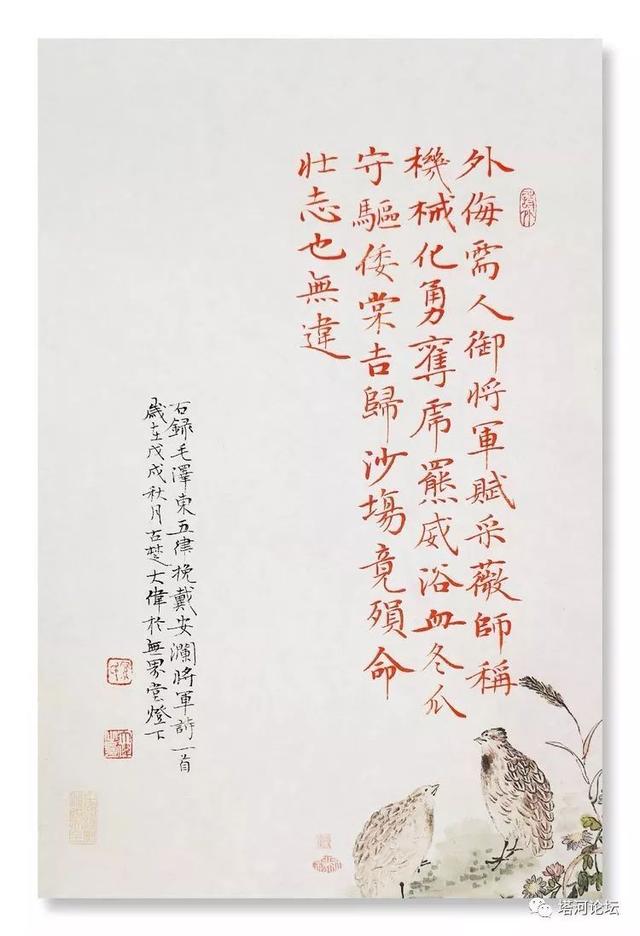 外侮需人御將軍賦采薇師稱
機械化勇奪虎羆威浴血冬瓜
守驅倭棠吉歸沙塲竟殞命
壯志也無違
右錄毛澤東五律挽戴安瀾將軍詩一首
歲在戊戌秋月古楚大偉於無界堂燈下
塔河论坛